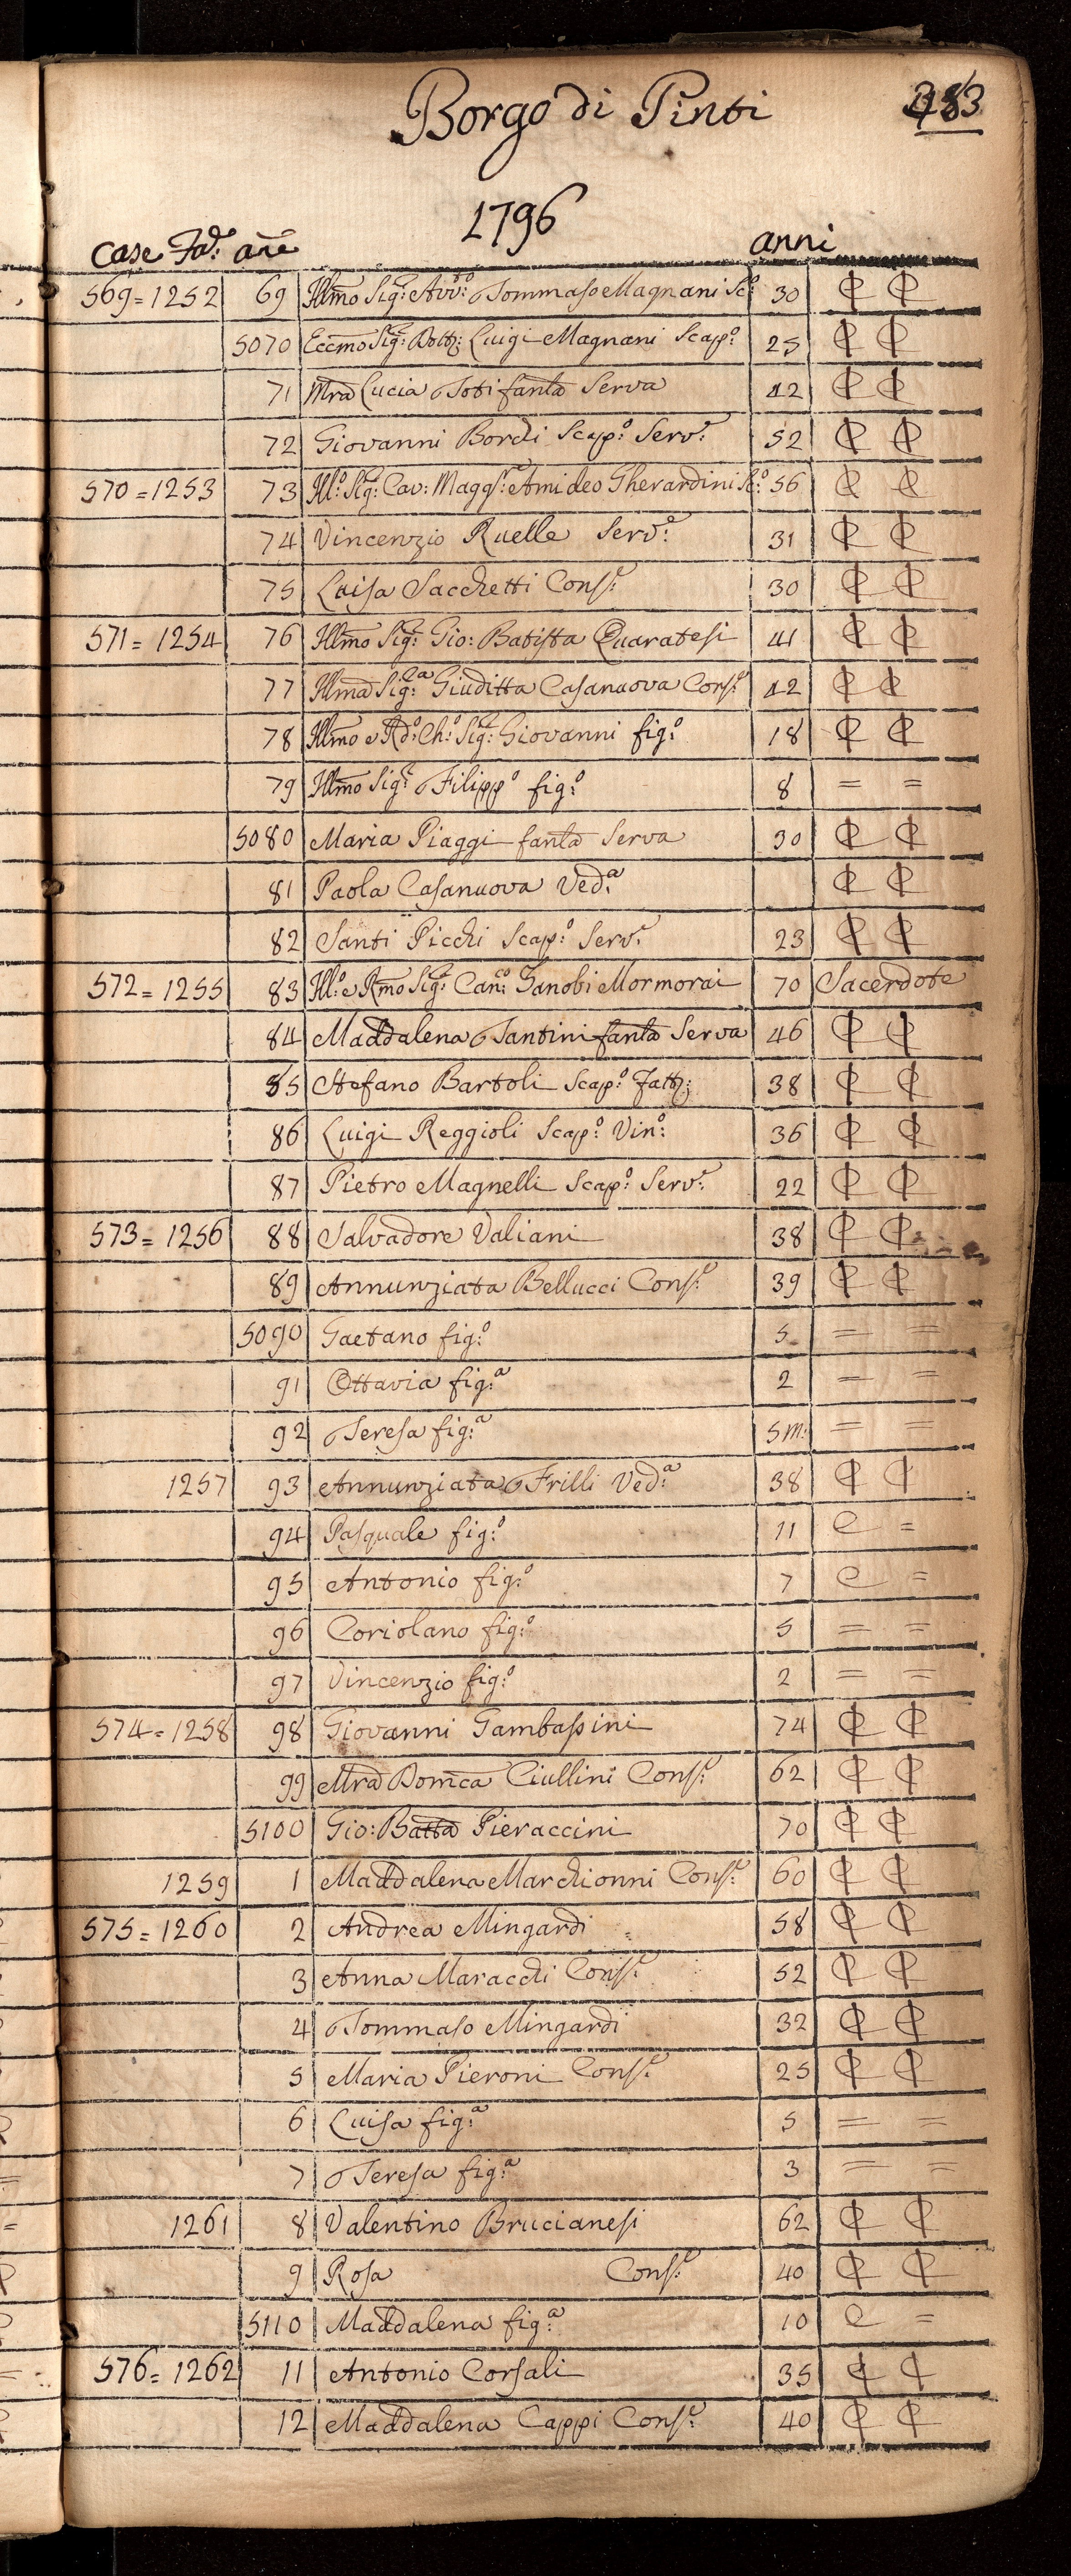 Borgo di Pinti
1796
case Fa: añe anni
569 = 1252 69 Illmo Sig:r Avv:to Tommaso Magnani Sc:o 30 ₵ ₵
5070 Eccmo Sig:r Dott: Luigi Magnani Scap:o 25 ₵ ₵
71 Mra Lucia Toti fanla Serva 42 ₵ ₵
72 Giovanni Bordi Scap:o Serv:e 52 ₵ ₵
570 = 1253 73 Ill:o Sig:r Cav: Magg:re Amideo Gherardini Sc:o 56 ₵ ₵
74 Vincenzio Ruelle Serv:e 31 ₵ ₵
75 Luisa Sacchetti Cons:e 30 ₵ ₵
571 = 1254 76 Illmo Sig:r Gio: Batista Quaratesi 41 ₵ ₵
77 Illma Sig:ra Giuditta Casanuova Cons:e 42 ₵ ₵
78 Illmo e Rd:o Ch:o Sig:r Giovanni fig:o 18 ₵ ₵
79 Illmo Sig:r Filipp:o fig:o 8 = =
5080 Maria Piaggi fanla Serva 30 ₵ ₵
81 Paola Casanuova Ved:a ₵ ₵
82 Santi Picchi Scap:o Serv:e 23 ₵ ₵
572 = 1255 83 Ill:o e Rmo Sig:r Can:co Zanobi Mormorai 70 Sacerdote
84 Maddalena Santini fanla Serva 46 ₵ ₵
85 Stefano Bartoli Scap:o Fatt: 38 ₵ ₵
86 Luigi Reggioli Scap:o Vin:o 36 ₵ ₵
87 Pietro Magnelli Scap:o Serv:e 22 ₵ ₵
573 = 1256 88 Salvadore Valiani 38 ₵ ₵
89 Annunziata Bellucci Cons:e 39 ₵ ₵
5090 Gaetano fig:o 5 = =
91 Ottavia fig:a 2 = =
92 Teresa fig:a 5 m: = =
1257 93 Annunziata Frilli Ved:a 38 ₵ ₵
94 Pasquale fig:o 11 C =
95 Antonio fig:o 7 C =
96 Coriolano fig:o 5 = =
97 Vincenzio fig:o 2 = =
574 = 1258 98 Giovanni Gambassini 74 ₵ ₵
99 Mra Domca Ciullini Cons:e 62 ₵ ₵
5100 Gio: Batta Pieraccini 70 ₵ ₵
1259 1 Maddalena Marchionni Cons:e 60 ₵ ₵
575 = 1260 2 Andrea Mingardi 58 ₵ ₵
3 Anna Maracchi Cons:e 52 ₵ ₵
4 Tommaso Mingardi 32 ₵ ₵
5 Maria Pieroni Cons:e 25 ₵ ₵
6 Luisa fig:a 5 = =
7 Teresa fig:a 3 = =
1261 8 Valentino Brucianesi 62 ₵ ₵
9 Rosa Cons:e 40 ₵ ₵
5110 Maddalena fig:a 10 C =
576 = 1262 11 Antonio Corsali 35 ₵ ₵
12 Maddalena Cappi Cons:e 40 ₵ ₵